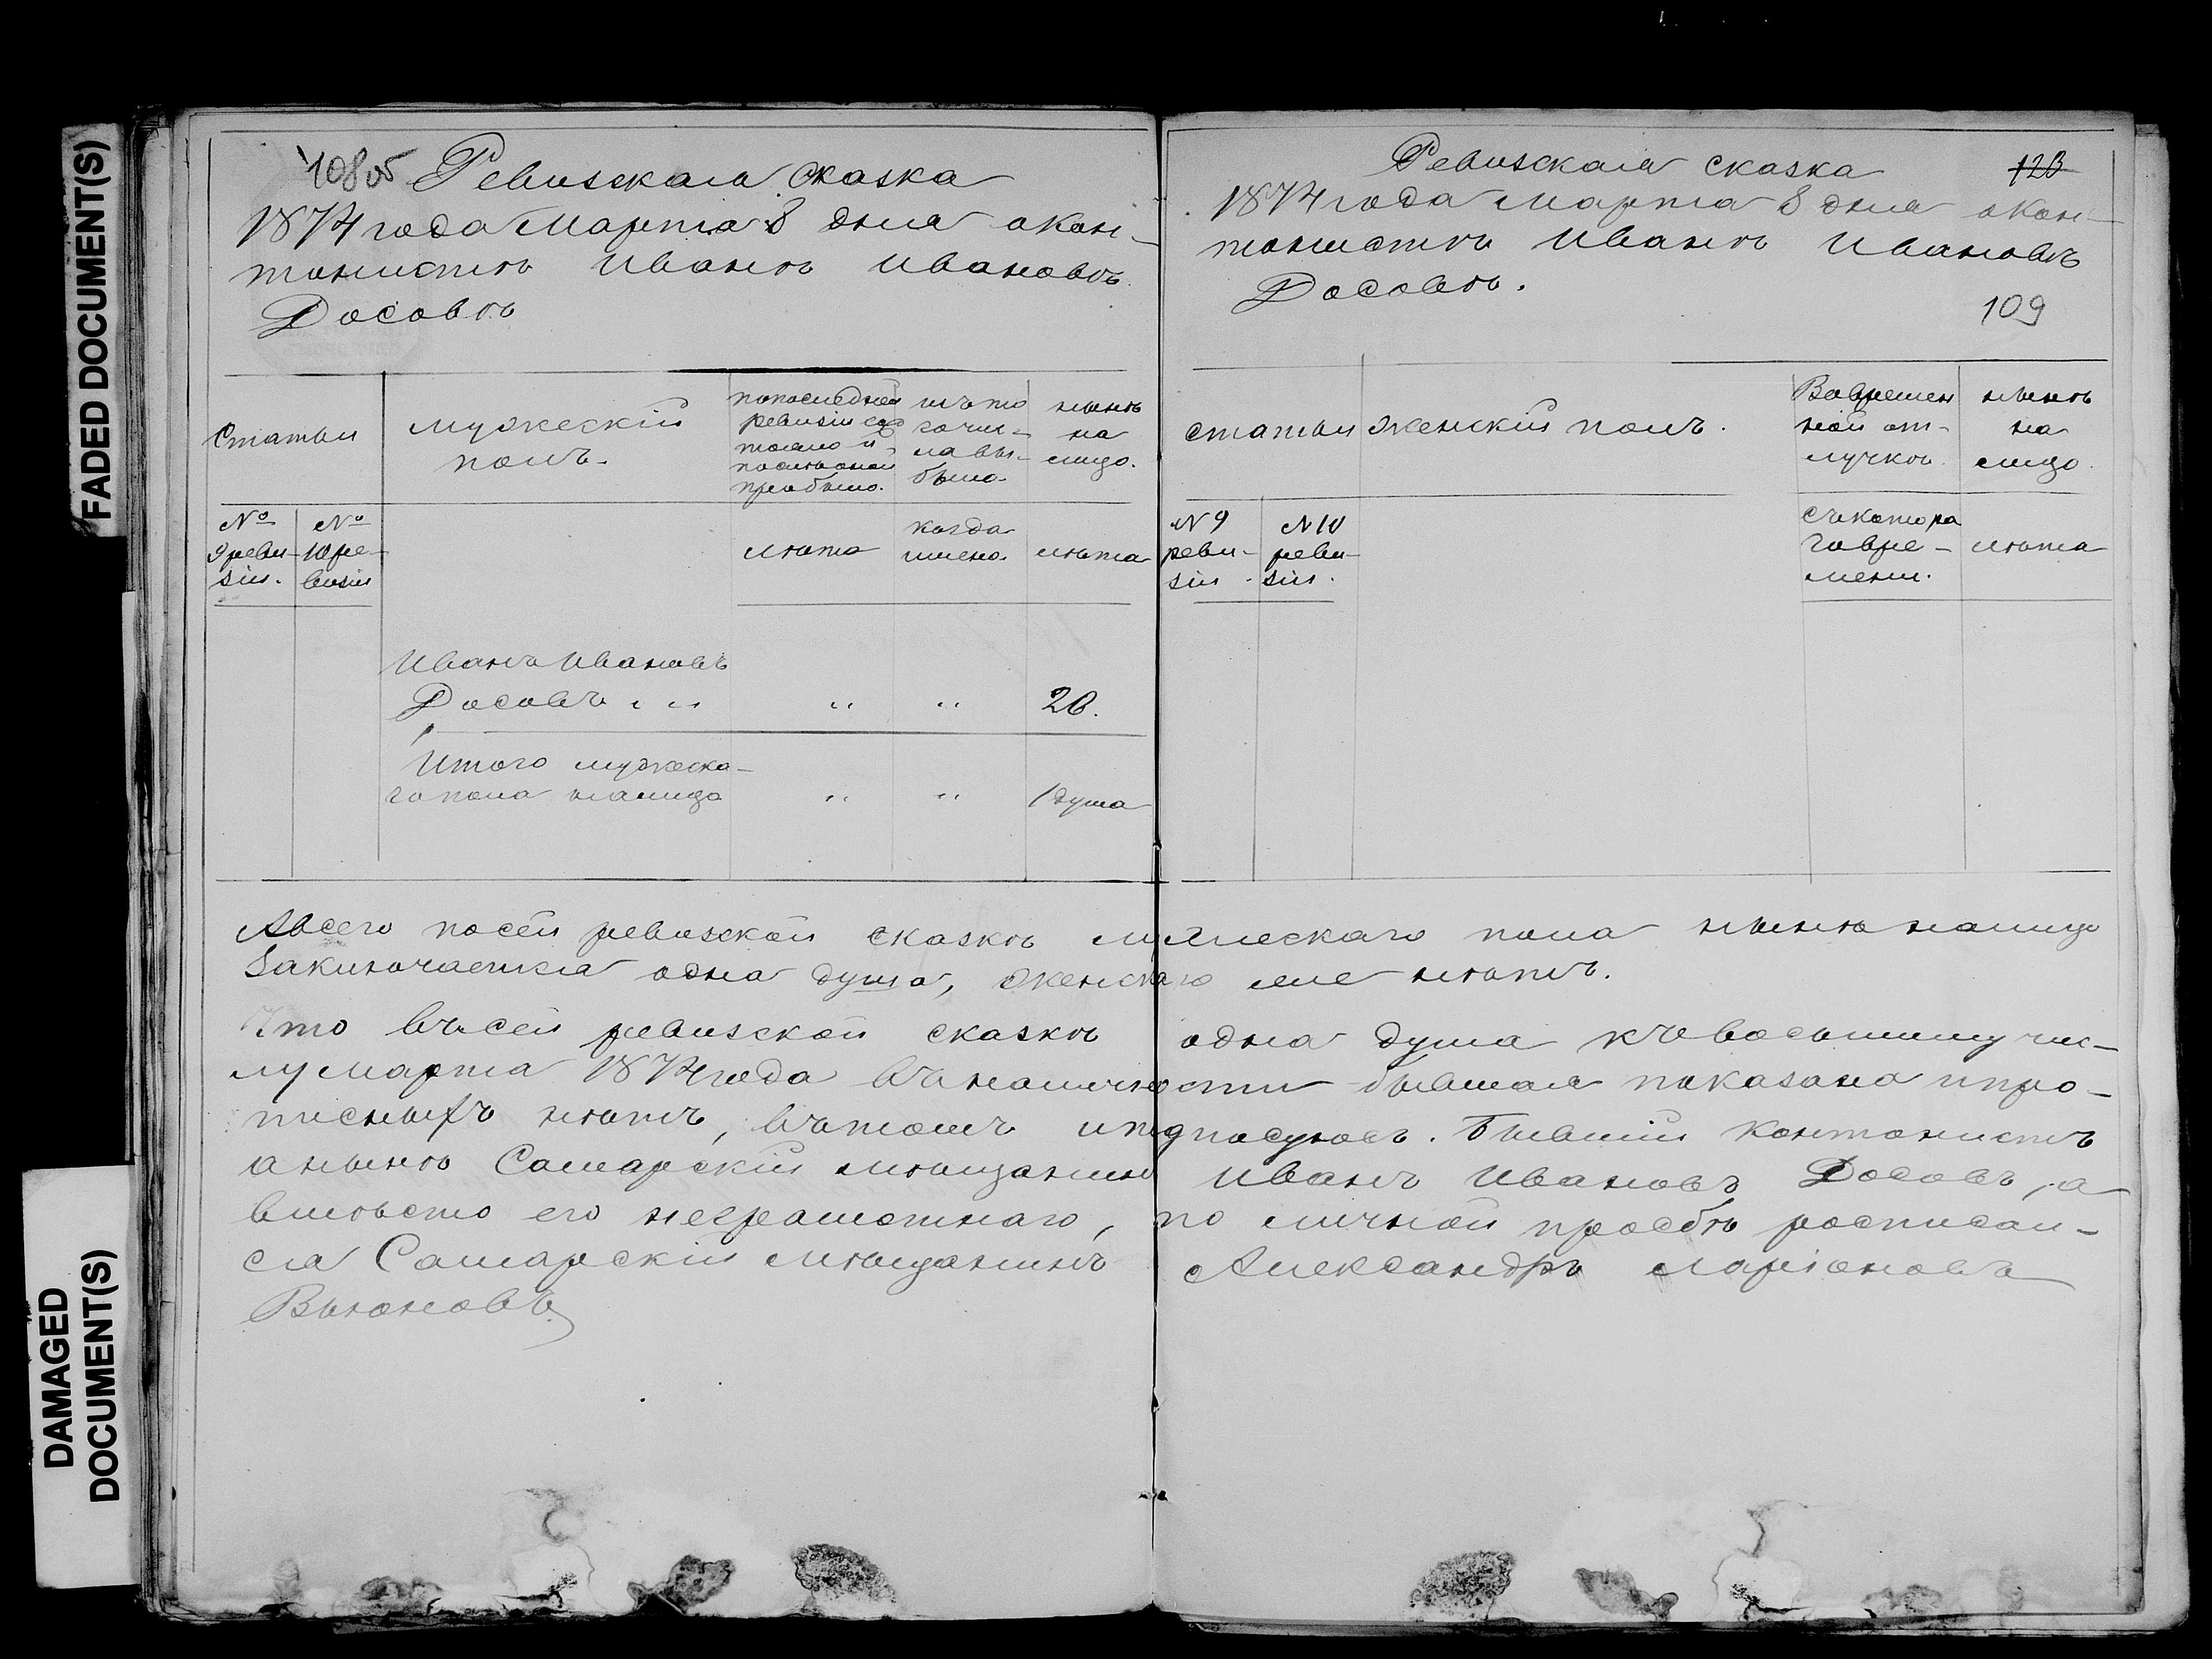 FADED DOCUMENT(S)
DAMAGED
DOCUMENT(S)
108 об
Ревизская сказка
1874 года Марта 8 дня о кон-
тонистѣ Иванѣ Ивановѣ
Досовѣ
Статьи
мужескій
полъ.
по последней
ревизіи со
стояло и
послѣ оной
прибыло.
изъ то
го чис-
ла вы-
было.
нынѣ
на
лицо.
№
9 реви-
зіи.
№
10 ре-
визіи
лѣта
когда
имено.
лѣта
Иванъ Ивановъ
Досовъ " " " " 20.
Итого мужеска-
го пола на лицо " " 1 душа
Ревизская сказка
123
1874 года Марта 8 дня о кон-
тонистѣ Иванѣ Ивановѣ
Досовѣ.
109
статьи
женскій полъ.
Во времен
ной от-
лучкѣ
нынѣ
на
лицо.
№ 9
реви-
зіи.
№ 10
реви-
зіи.
съ котора
го вре-
мени.
лѣта
А всего по сей ревизской сказкѣ мужескаго пола нынѣ на лицо
заключается одна душа, женскаго же нѣтъ.
Что въ сей ревизской сказкѣ одна душа къ восьмому чис-
лу Марта 1874 года въ наличности бывшая показана и про-
писныхъ нѣтъ, въ томъ и подписуюсь. Бывшій контонистъ
а нынѣ Самарскій мѣщанинъ Иванъ Ивановъ Досовъ, а
вмѣсто его неграмотнаго, по личной просбѣ росписал-
ся Самарскій мѣщанинъ Александръ Ларіоновъ
Вьюновъ